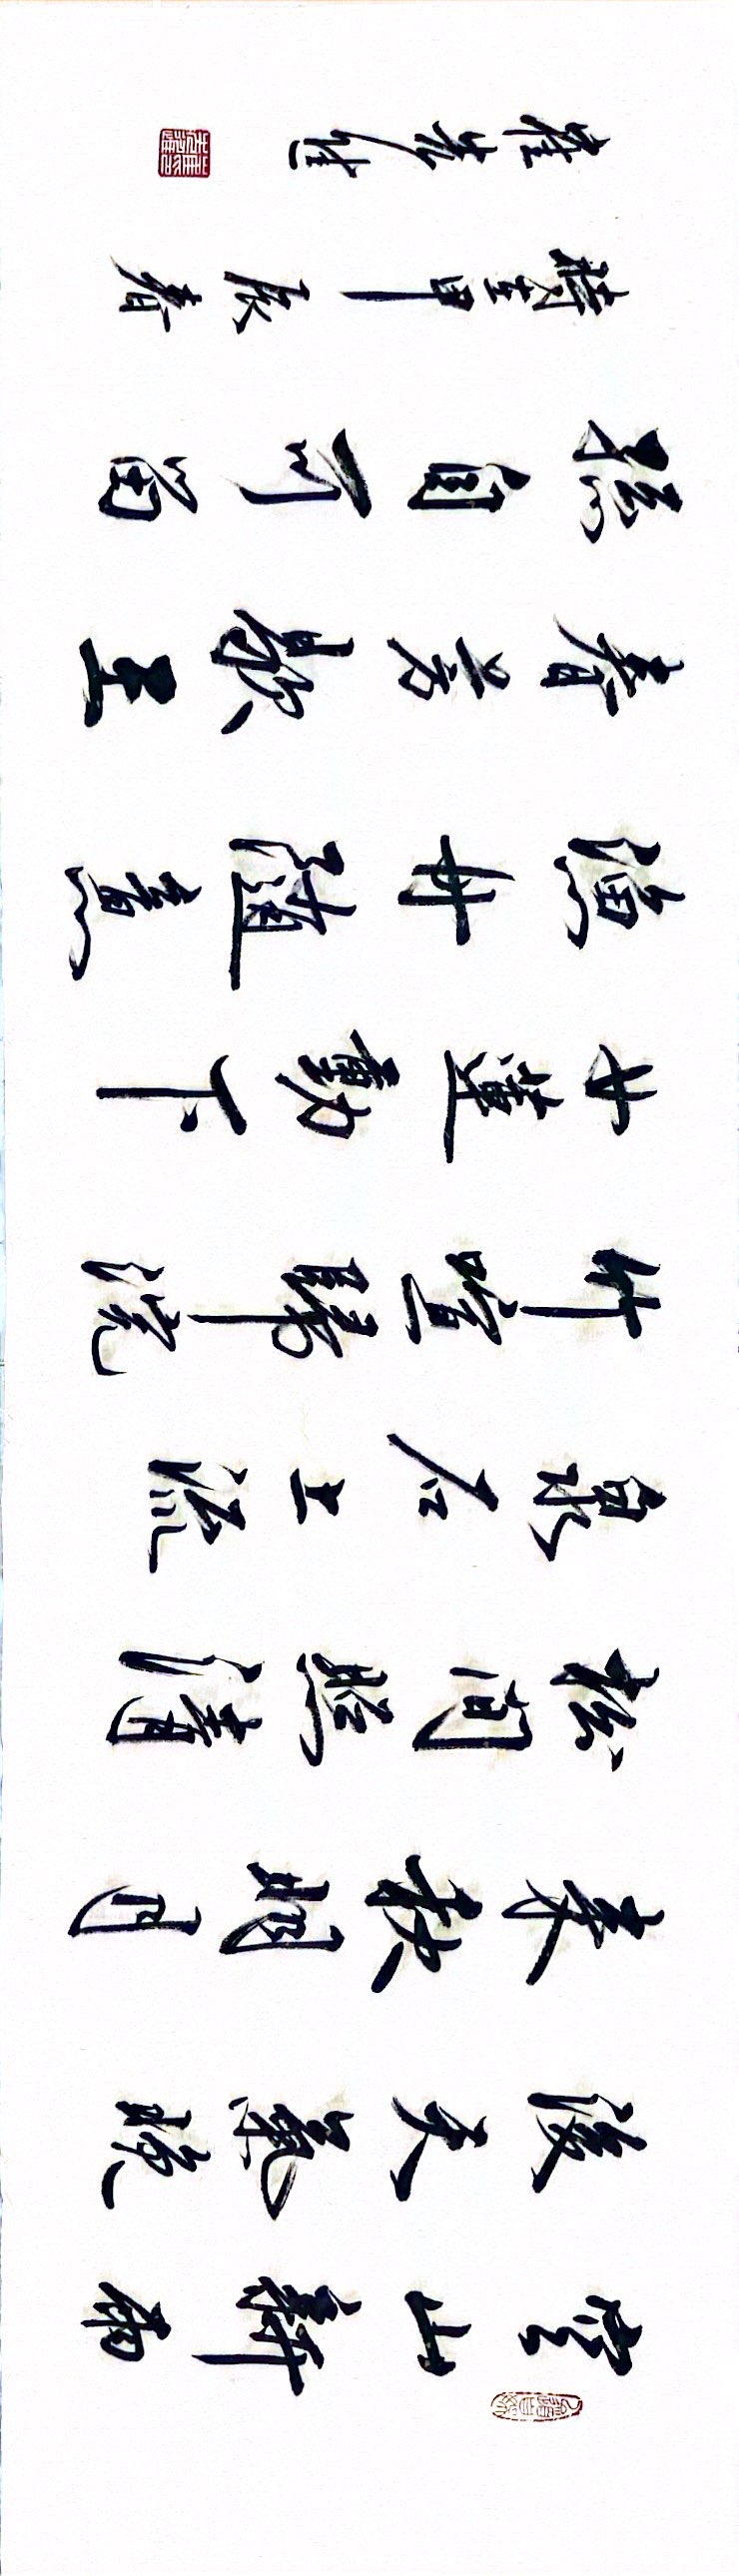 空山新雨
後天氣晚
來秋明月
松間照清
泉石上流
竹喧歸浣
女蓮動下
漁舟隨意
春芳歇王
孫自可留
歲在甲辰春
崔